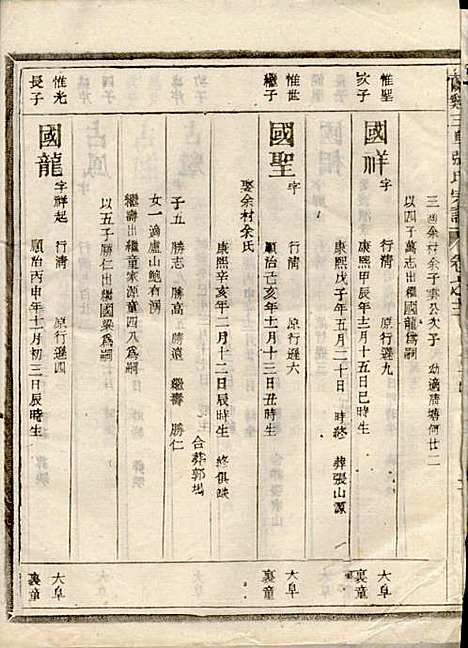 三適余村余子雲公次子 幼適唐塘何廿二
以四子萬志出繼國龍為嗣
惟聖
次子
國祥
字
行清 原行遜九
康熙甲辰年十二月十五日巳時生
康熙戊子年五月二十日 時終 葬張山源
大阜
裏童
惟世
繼子
國聖
字
行清 原行遜六
順治己亥年十一月十三日丑時生
康熙辛亥年二月十二日辰時生 終俱缺
娶余村余氏
合葬郭塢
大阜
裏童
子五 勝志 勝高 勝遠 繼壽 勝仁
女一 適盧山鮑有潤
繼壽出繼童家源童四八為嗣
以五子勝仁出繼國梁為嗣
惟光
長子
國龍
字祥起 行清 原行遜四
順治丙申年十一月初三日辰時生
大阜
裏童